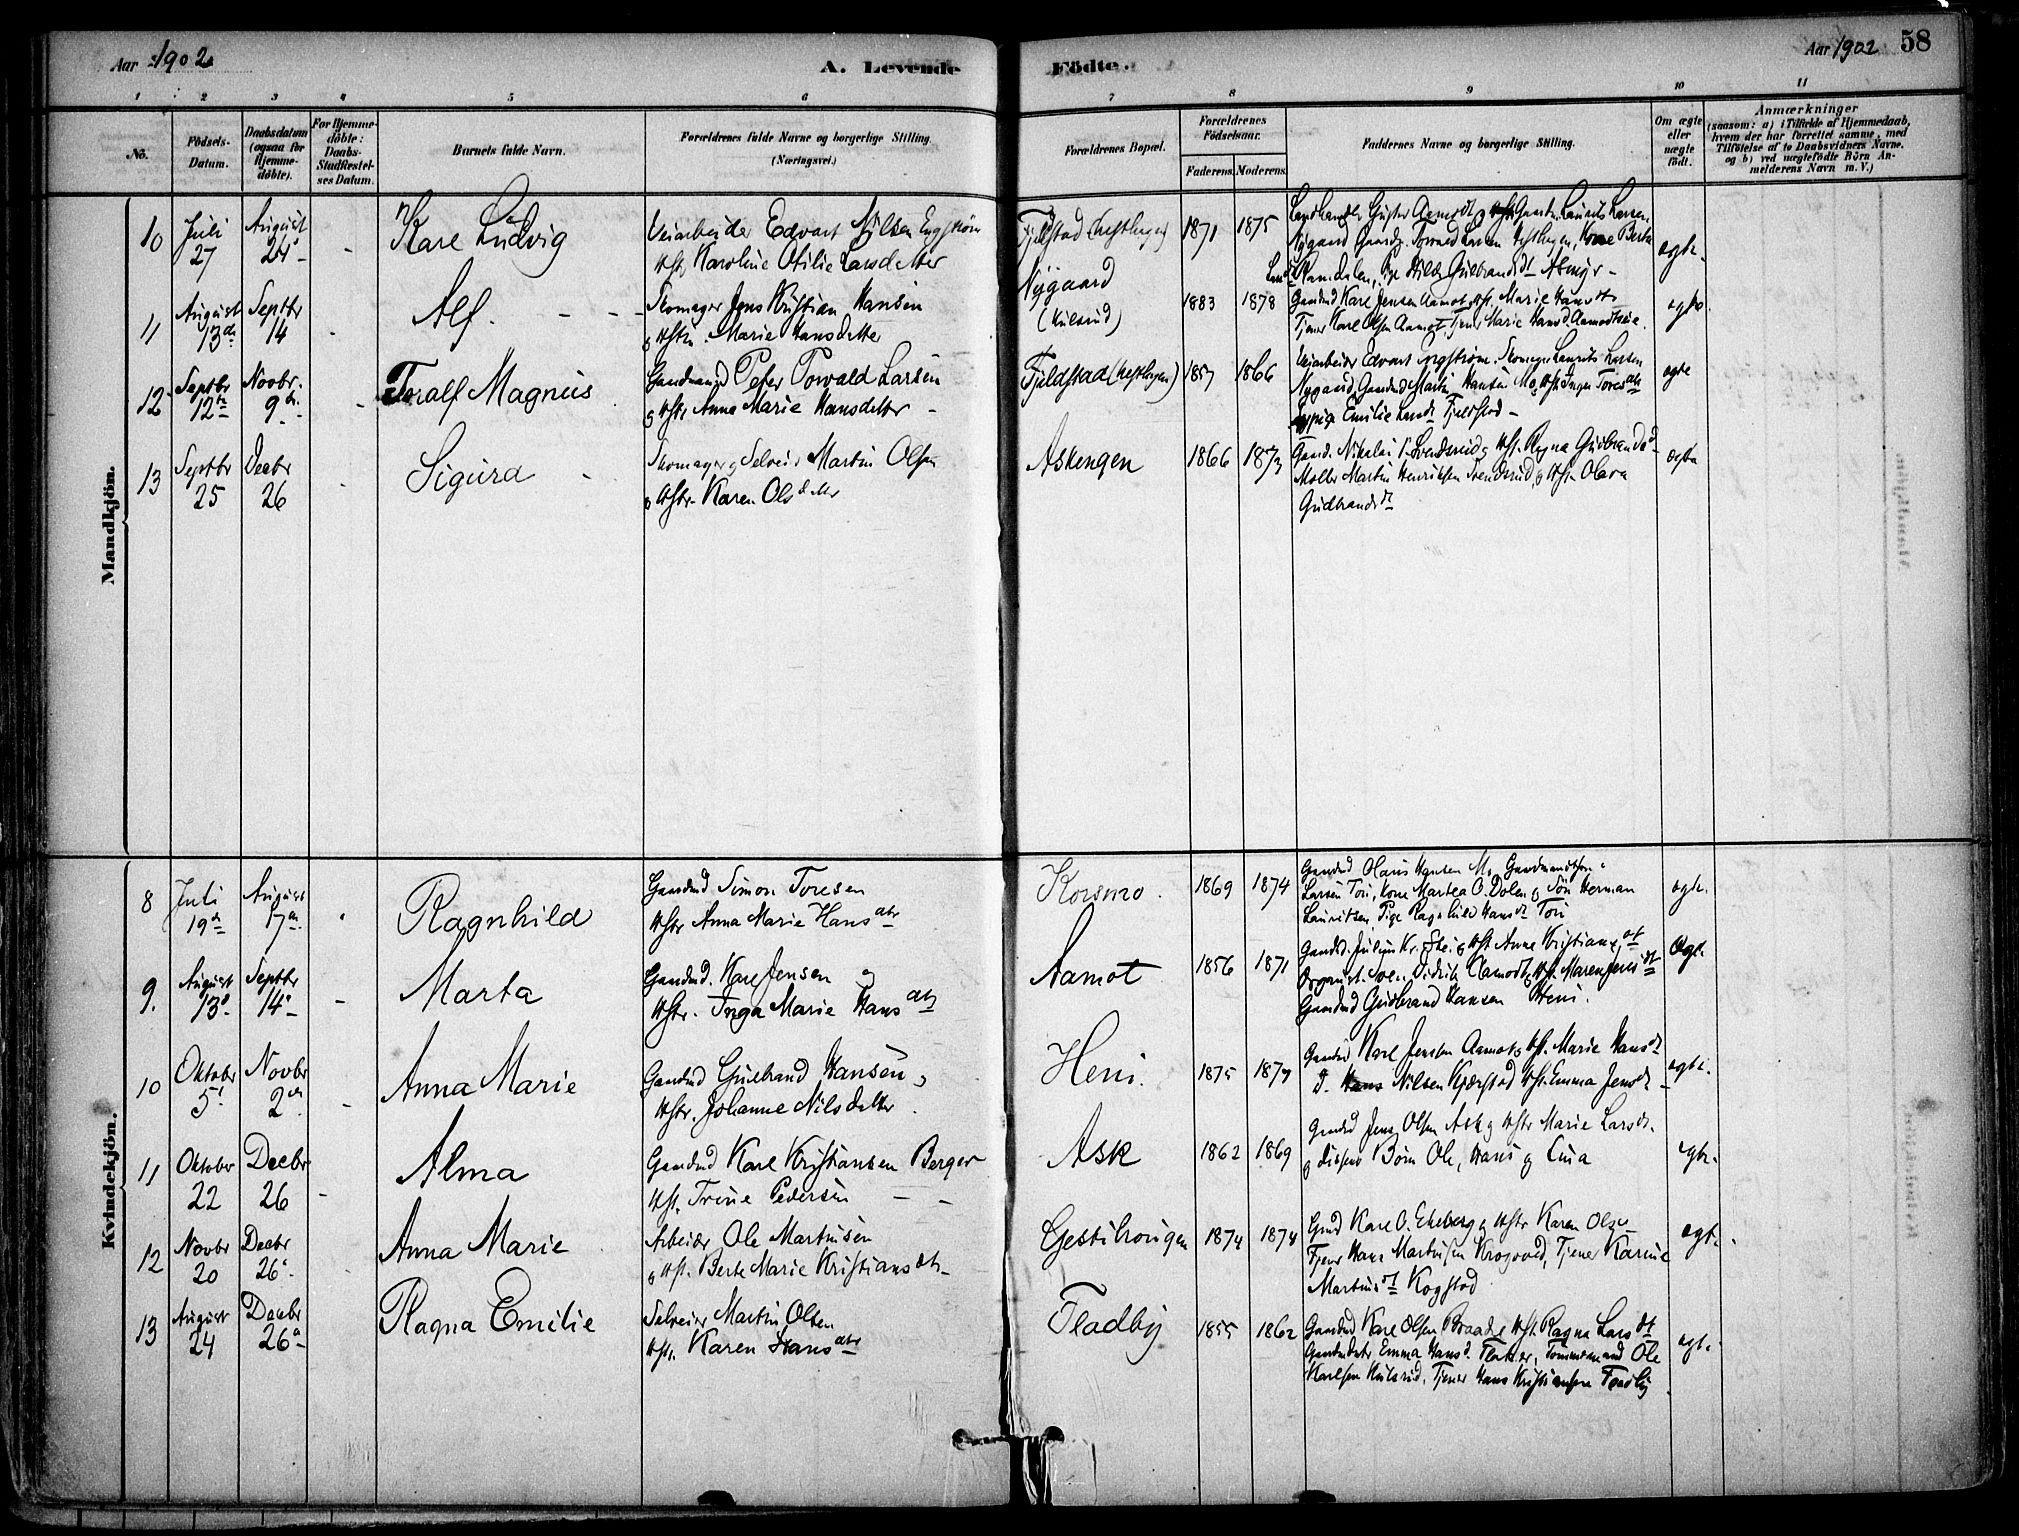 Aar 1902
A. Levende Födte.
Aar 1902 58
1 2 3 4 5 6 7 8 9 10 11
No.
Födsels-
Datum.
Daabsdatum
(ogsaa for
Hjemme-
döbte).
For Hjemme-
döbte:
Daabs-
Stadfæstel-
ses Datum.
Barnets fulde Navn.
Forældrenes fulde Navne og borgerlige Stilling.
(Næringsvei.)
Forældrenes Bopæl.
Forældrenes
Födselsaar.
Faderens. Moderens.
Faddernes Navne og borgerlige Stilling.
Om ægte
eller
uægte
født.
Anmærkninger
(saasom: a) i Tilfælde af Hjemmedaab,
hvem der har forrettet samme, med
Tilføielse af to Daabsvidners Navne.
og b) ved uægtefödte Börn An-
melderens Navn m. V.)
Mandkjön.
10 Juli 27 August 24 Kare Ludvig
Veiarbeider Edvart Nilsen Engstrøm
Hstr Karoline Otilie Larsdatter
Fjeldstad 1871 1875
Nygaard Torvald Larsen Berta
ægte
11 August 13de Septbr 14 Alf.
Skomager Jens Kristian Hansen
og Hstr. Marie Hansdatter
Nygaard
(Kulsrud) 1883 1878
Gaardmd Karl Jensen Aamot og Hst. Marie Hansdtr
Tjener Karl Olsen Aamot, Tjener Marie Hansd.
ægte
12 Septbr 12te Novbr. 9de Toralf Magnus
Gaardmand Peter Torvald Larsen
og Hstr Anna Marie Hansdatter
Fjeldstad 1857 1866
Veiarbeider Edvart Engstrøm. Skomager Laurits Larsen
Nygaard, Gaardmd Martin Hansen Mo, Hst. Inger Toresdtr
Emilie Larsdt Fjeldstad
ægte
13 Septbr 25 Decbr 26 Sigurd
Skomager og Selveier Martin Olsen
og Hstr. Karen Olsdatter
Askengen 1866 1873
Gaardmd. Nikolai Hst. Ragna Gudbrandsd
Møller Martin Henriksen Svendsrud, og Hstr Olava
Gudbrandsdt
ægte
Kvindekjön.
8 Juli 19de August 17de Ragnhild
Gaardmd Simon Toresen
Hstr Anna Marie Hansdtr
Korsmo. 1869 1874
Gaardmd Olaus Hansen Mo
Larsen Tori, Kone Martea O. Dolen og Søn Herman
Lauritsen, Pige Ragnhild Hansdt Tori
ægte.
9. August 13de Septbr 14de Marta
Gaardmd. Karl Jensen og
Hstr. Inga Marie Hansdtr
Aamot 1856 1871
Gaardmd Gudbrand Hansen Heni.
Ægte.
10 Oktober 5te Novbr 2den Anna Marie
Gaardmd Gudbrand Hansen og
Hstr. Johanne Nilsdatter.
Heni. 1875 1879
Gaardmd Karl Jensen Aamot og Hst. Marie Hansdt
Nilsen Kjærstad Hst. Emma Jensdt
ægte.
11 Oktober 22 Decbr 26 Alma
Gaardmd Karl Kristiansen Berger
Hst. Trine Pedersen
Ask 1862 1869
Gaardmd Jens Olsen Ask og Hstr Marie Larsdt.
og disses Børn Ole, Hans og Lina
ægte.
12 Novbr 20 Decbr 26 Anna Marie
Arbeider Ole Martinsen
og Hst. Berte Marie Kristiansdtr
Gestihrongen 1874 1874
Gmd Karl O. Ekeberg og Hstr Karen Olsen
Tjener Hans Martinsen Krogsrud, Tjener Karine
Martinsdt Kogstad
ægte.
13 August 24 Decbr 26 Ragna Emilie
Selveier Martin Olsen
Hstr. Karen Hansdtr
Fladby 1855 1862
Gaardmd Karl Olsen Braate Hst. Ragna Larsdt
Gaardmdatr Emma Hansd. Flatner, Tømmermand Ole
Karlsen Kulsrud, Tjener Hans Kristiansen Fladby
ægte.